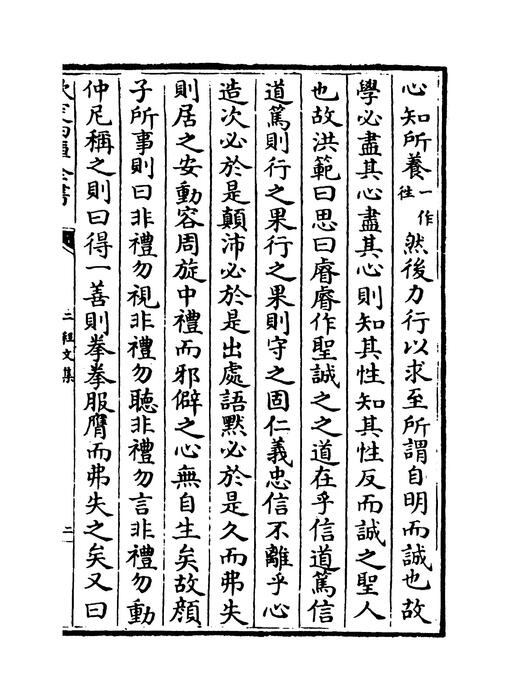 心知所養一作往然後力行以求至所謂自明而誠也故
學必盡其心盡其心則知其性知其性反而誠之聖人
也故洪範曰思曰睿睿作聖誠之之道在乎信道篤信
道篤則行之果行之果則守之固仁義忠信不離乎心
造次必於是顛沛必於是出處語默必於是久而弗失
則居之安動容周旋中禮而邪僻之心無自生矣故顔
子所事則曰非禮勿視非禮勿聽非禮勿言非禮勿動
仲尼稱之則曰得一善則拳拳服膺而弗失之矣又曰
欽定四庫全書
二程文集
二